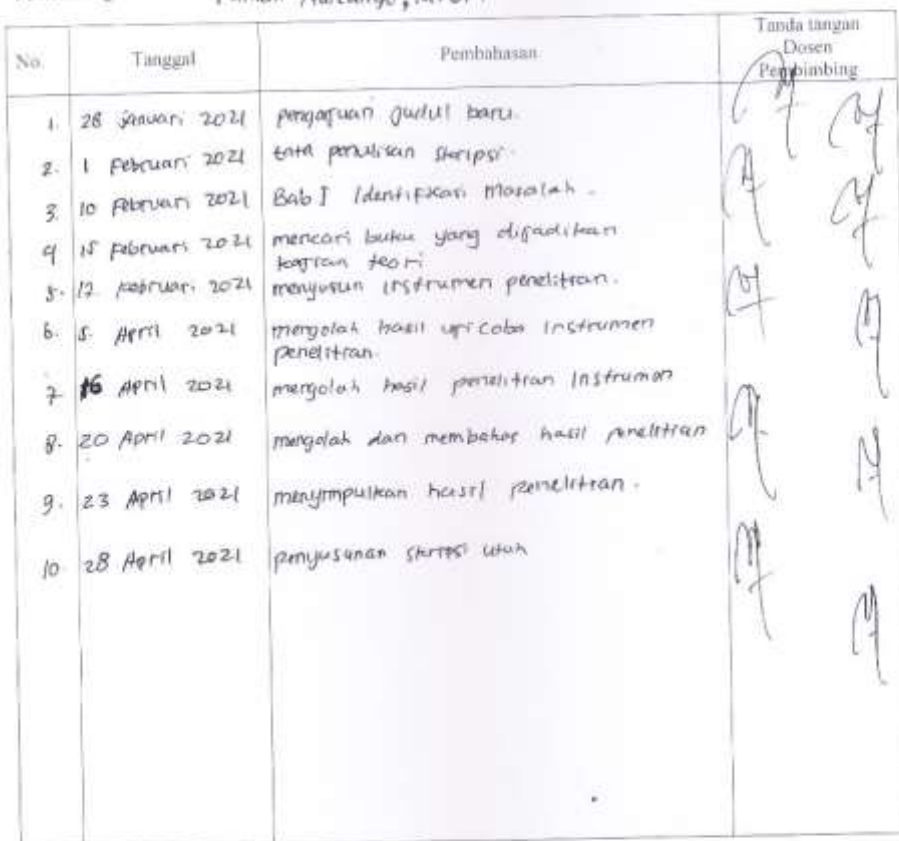 No.
Tanggal
Pembahasan
Tanda tangan
Dosen
Pembimbing
1. 28 Januari 2021 pengajuan judul baru.
2. 1 Februari 2021 tata penulisan skripsi.
3. 10 Februari 2021 Bab I Identifikasi Masalah.
4 15 Februari 2021 mencari buku yang dijadikan
kajian teori
5. 17 Februari 2021 menyusun instrumen penelitian.
6. 5 April 2021 mengolah hasil uji coba Instrumen
penelitian.
7 16 April 2021 mengolah hasil penelitian Instrumen
8. 20 April 2021 mengolah dan membahas hasil penelitian
9. 23 April 2021 menyimpulkan hasil penelitian.
10 28 April 2021 penyusunan skripsi utuh